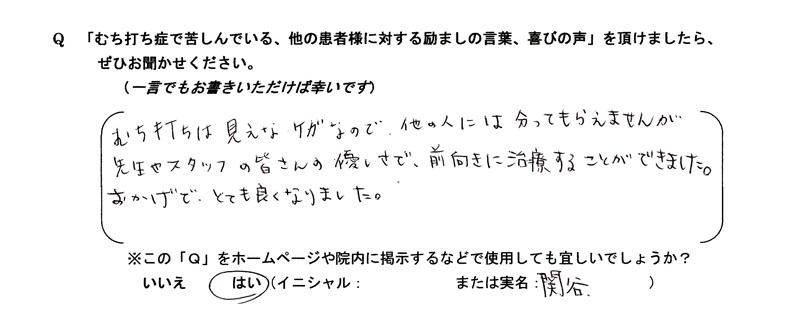 Q 「むち打ち症で苦しんでいる、他の患者様に対する励ましの言葉、喜びの声」を頂けましたら、
ぜひお聞かせください。
（一言でもお書きいただけば幸いです）
むち打ちは見えなケガなので、他の人には分ってもらえませんが
先生やスタッフの皆さんの優しさで、前向きに治療することができました。
おかげで、とても良くなりました。
※この「Q」をホームページや院内に掲示するなどで使用しても宜しいでしょうか？
いいえ はい（イニシャル： または実名：関谷 ）